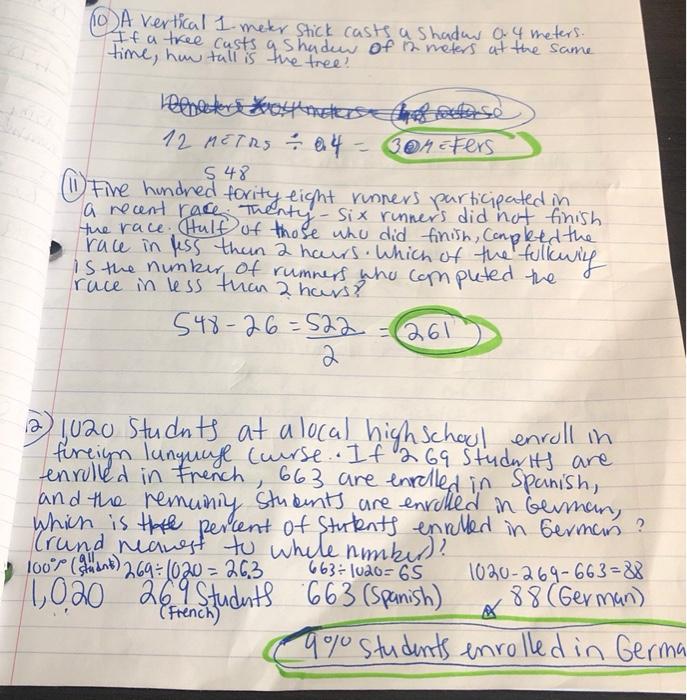 10) A vertical 1 meter stick casts a shadow 0.4 meters.
If a tree casts a shadow of 12 meters at the same
time, how tall is the tree?
12 METRS ÷ 0.4 = 30 METERS
548
11) Five hundred fority eight runners participated in
a recent race. Twenty-six runners did not finish
the race. Half of those who did finish, completed the
race in less than 2 hours. Which of the following
is the number of runners who completed the
race in less than 2 hours?
548-26 = 522 = 261
2
12) 1,020 Students at a local high school enroll in
fureign lunguage Course. If 269 Students are
enrolled in French, 663 are enrolled in Spanish,
and the remaining students are enrolled in German,
which is the percent of Students enrolled in German?
(rund nearest to whole number)?
100% (all students) 269÷1020 = 26.3 663÷1020=65 1020-269-663=88
1,020 269 Students 663 (Spanish) 88 (German)
(French)
9% students enrolled in Germa